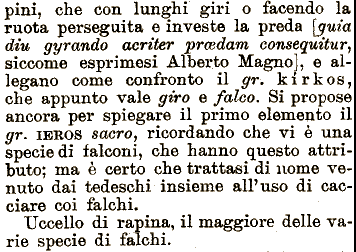 pini, che con lunghi giri o facendo la
ruota perseguita e investe la preda [guia
diu gyrando acriter prædam consequitur,
siccome esprimesi Alberto Magno], e al-
legano come confronto il gr. kirkos,
che appunto vale giro e falco. Si propose
ancora per spiegare il primo elemento il
gr. IEROS sacro, ricordando che vi è una
specie di falconi, che hanno questo attri-
buto; ma è certo che trattasi di nome ve-
nuto dai tedeschi insieme all'uso di cac-
ciare coi falchi.
Uccello di rapina, il maggiore delle va-
rie specie di falchi.